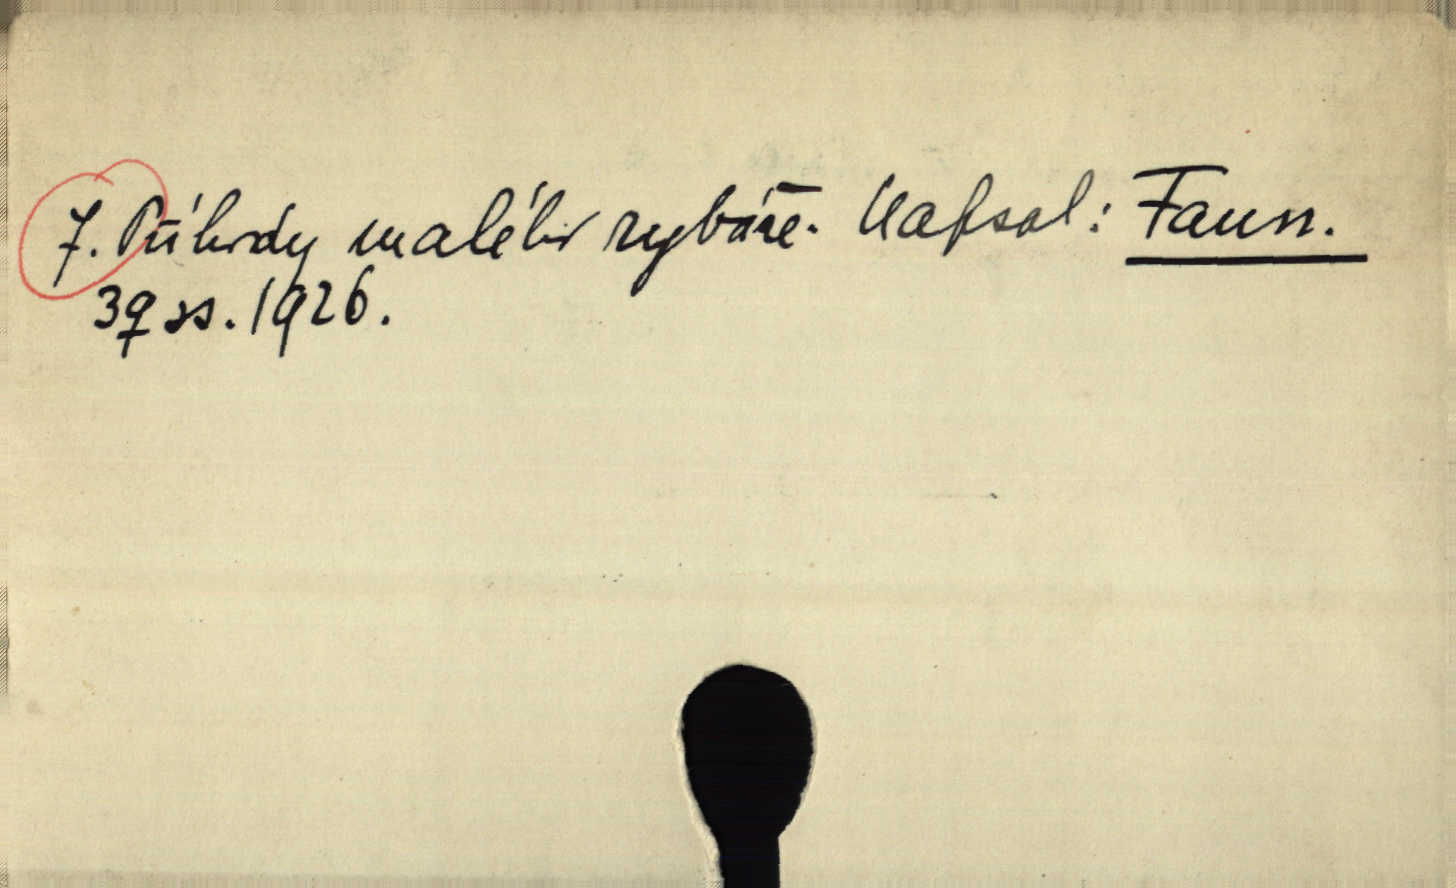 7. Příhody malého rybáře. Napsal: Faun.
39 ss. 1926.